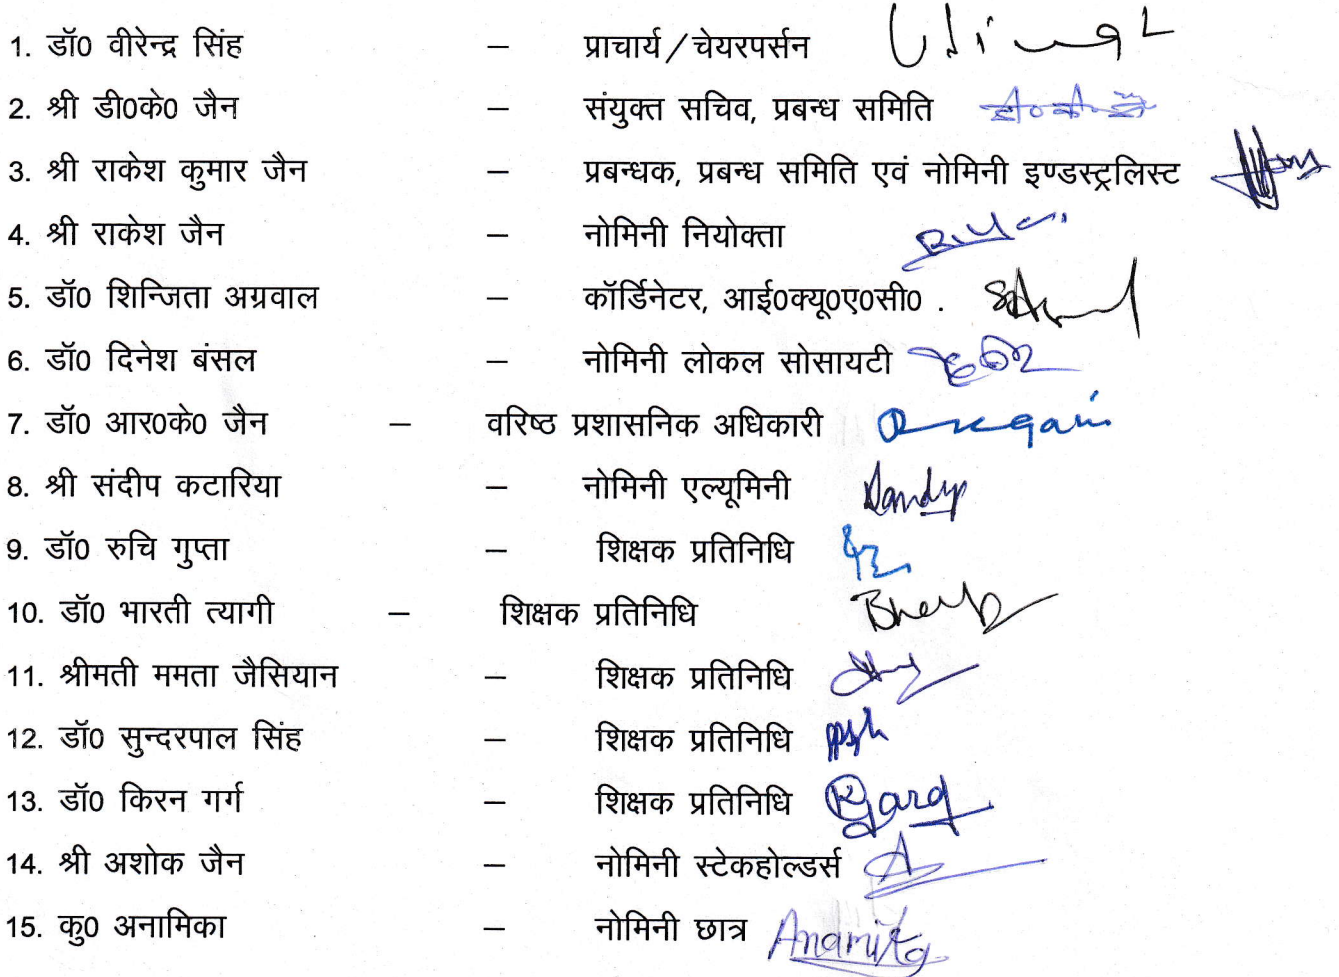 1. डॉ0 वीरेन्द्र सिंह – प्राचार्य/चेयरपर्सन
2. श्री डी0के0 जैन – संयुक्त सचिव, प्रबन्ध समिति
3. श्री राकेश कुमार जैन – प्रबन्धक, प्रबन्ध समिति एवं नोमिनी इण्डस्ट्रलिस्ट
4. श्री राकेश जैन – नोमिनी नियोक्ता
5. डॉ0 शिन्जिता अग्रवाल – कॉर्डिनेटर, आई0क्यू0ए0सी0 .
6. डॉ0 दिनेश बंसल – नोमिनी लोकल सोसायटी
7. डॉ0 आर0के0 जैन – वरिष्ठ प्रशासनिक अधिकारी
8. श्री संदीप कटारिया – नोमिनी एल्यूमिनी Sandip
9. डॉ0 रुचि गुप्ता – शिक्षक प्रतिनिधि
10. डॉ0 भारती त्यागी – शिक्षक प्रतिनिधि
11. श्रीमती ममता जैसियान – शिक्षक प्रतिनिधि
12. डॉ0 सुन्दरपाल सिंह – शिक्षक प्रतिनिधि
13. डॉ0 किरन गर्ग – शिक्षक प्रतिनिधि KGarg
14. श्री अशोक जैन – नोमिनी स्टेकहोल्डर्स
15. कु0 अनामिका – नोमिनी छात्र Anamika